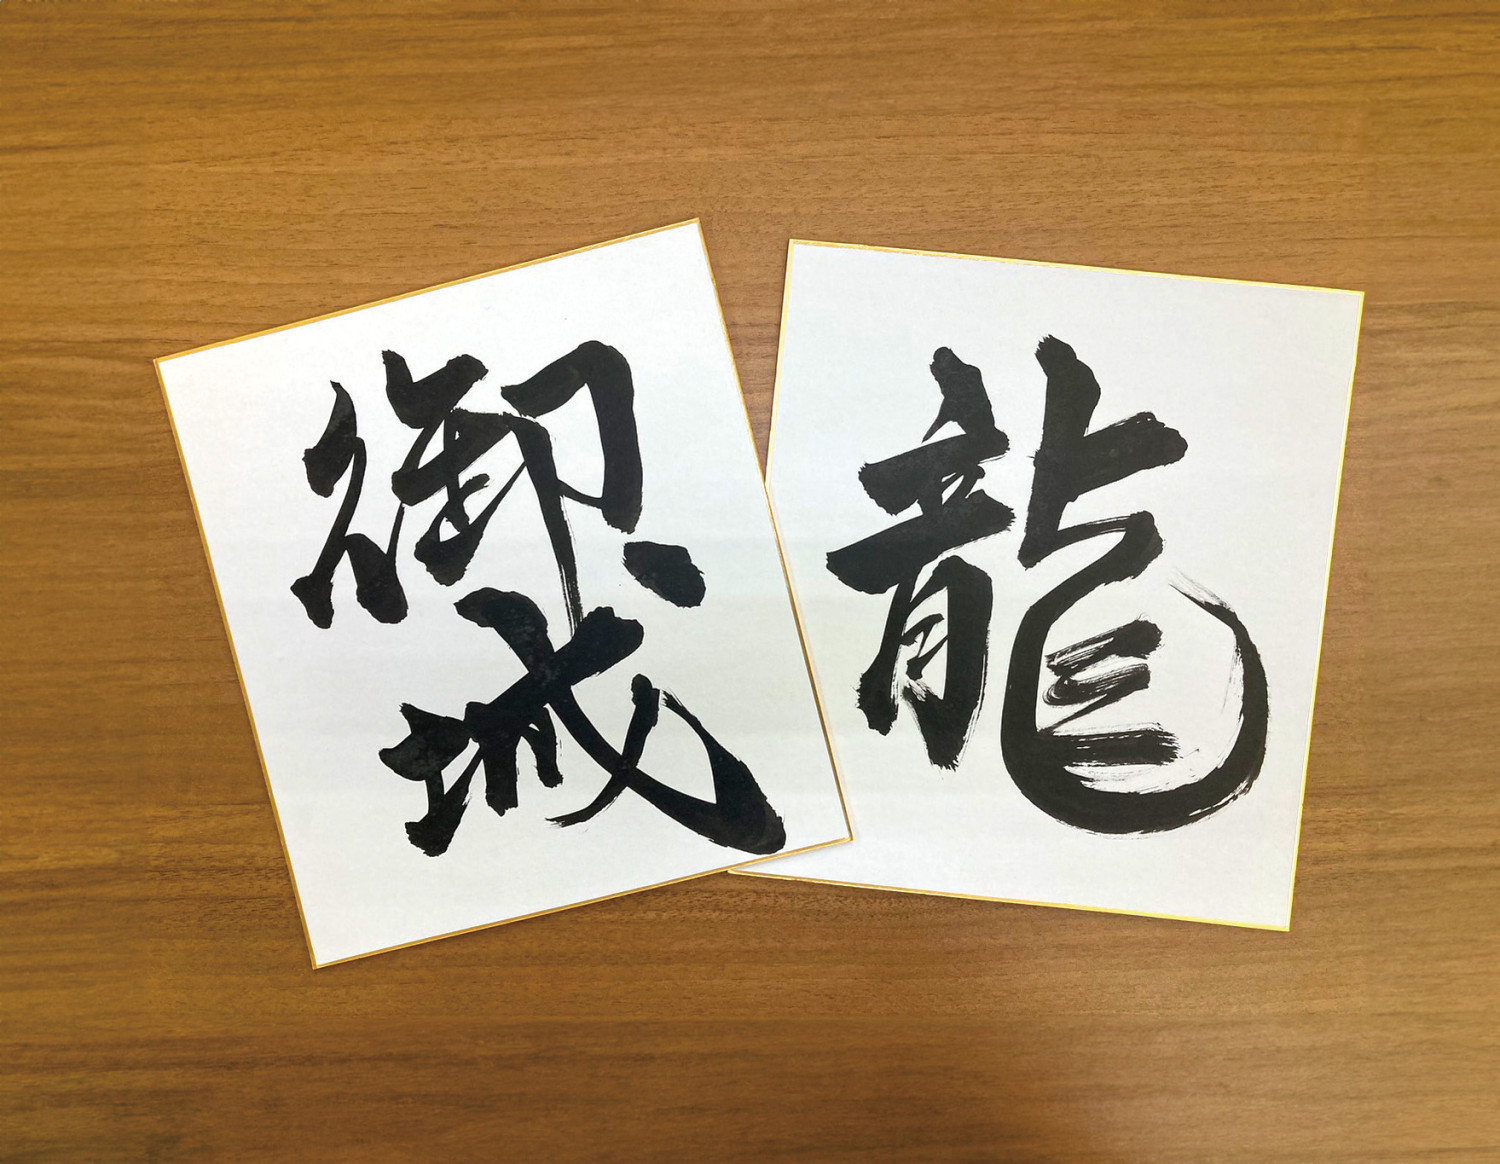 御
城
龍